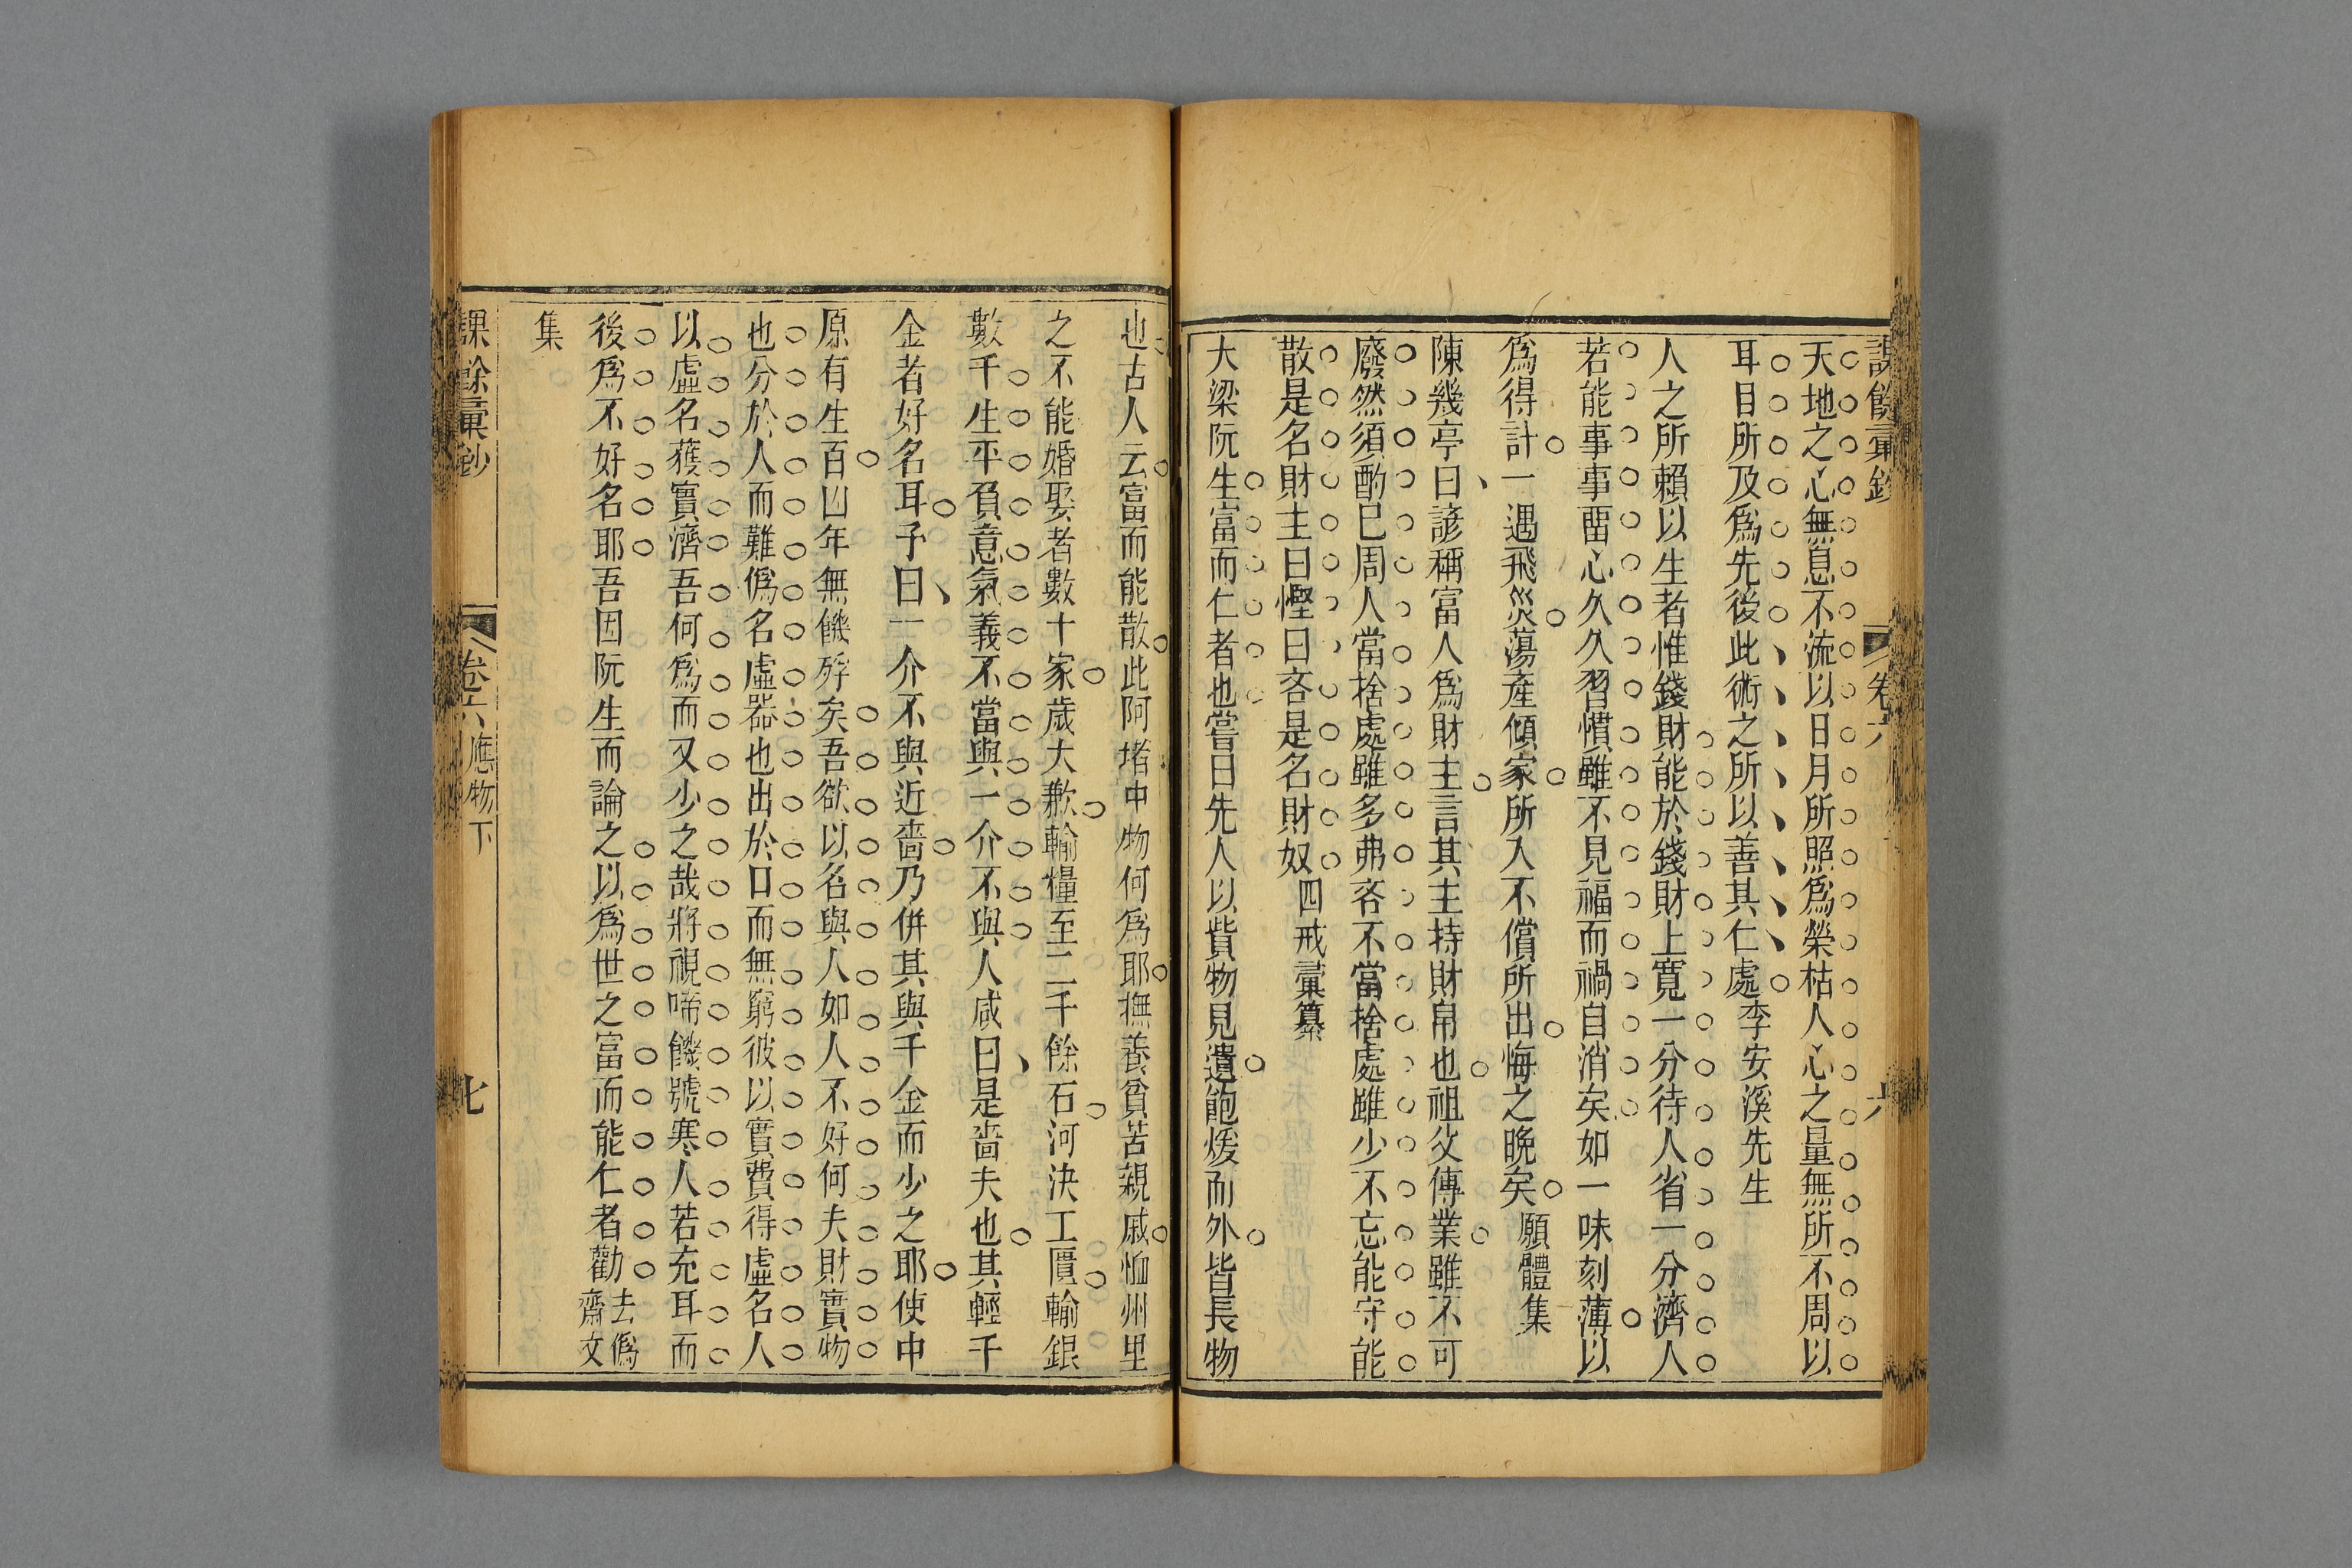 課餘彙鈔
卷六
六
天地之心無息不流以日月所照爲榮枯人心之量無所不周以
耳目所及爲先後此術之所以善其仁處李安溪先生
人之所賴以生者惟錢財能於錢財上寬一分待人省一分濟人
若能事事畱心久久習慣雖不見福而禍自消矣如一味刻薄以
爲得計一遇飛災蕩產傾家所入不償所出悔之晚矣願體集
陳幾亭曰諺稱富人爲財主言其主持財帛也祖父傳業雖不可
廢然須酌已周人當捨處雖多弗吝不當捨處雖少不忘能守能
散是名財主曰慳曰吝是名財奴四戒彙纂
大梁阮生富而仁者也嘗曰先人以貲物見遺飽煖而外皆長物
也古人云富而能散此阿堵中物何爲耶撫養貧苦親戚恤州里
之不能婚娶者數十家歲大歉輸糧至二千餘石河決工匱輸銀
數千生平負意氣義不當與一介不與人咸曰是嗇夫也其輕千
金者好名耳予曰一介不與近嗇乃併其與千金而少之耶使中
原有生百凶年無饑殍矣吾欲以名與人如人不好何夫財實物
也分於人而難僞名虛器也出於口而無窮彼以實費得虛名人
以虛名獲實濟吾何爲而又少之哉將視啼饑號寒人若充耳而
後爲不好名耶吾因阮生而論之以爲世之富而能仁者勸去僞齋文
集
課餘彙鈔
卷六
應物下
七